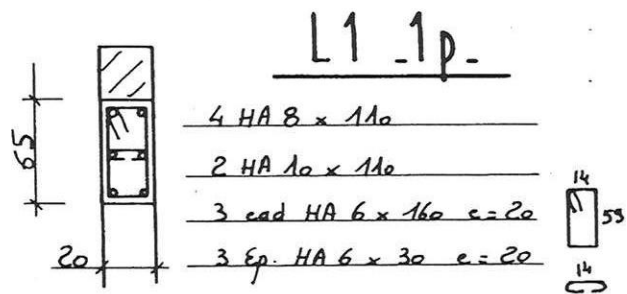 L1 _1p_
4 HA 8 x 110
2 HA 10 x 110
3 cad HA 6 x 160 e=20
3 Ep. HA 6 x 30 e=20
65
20
14
59
14